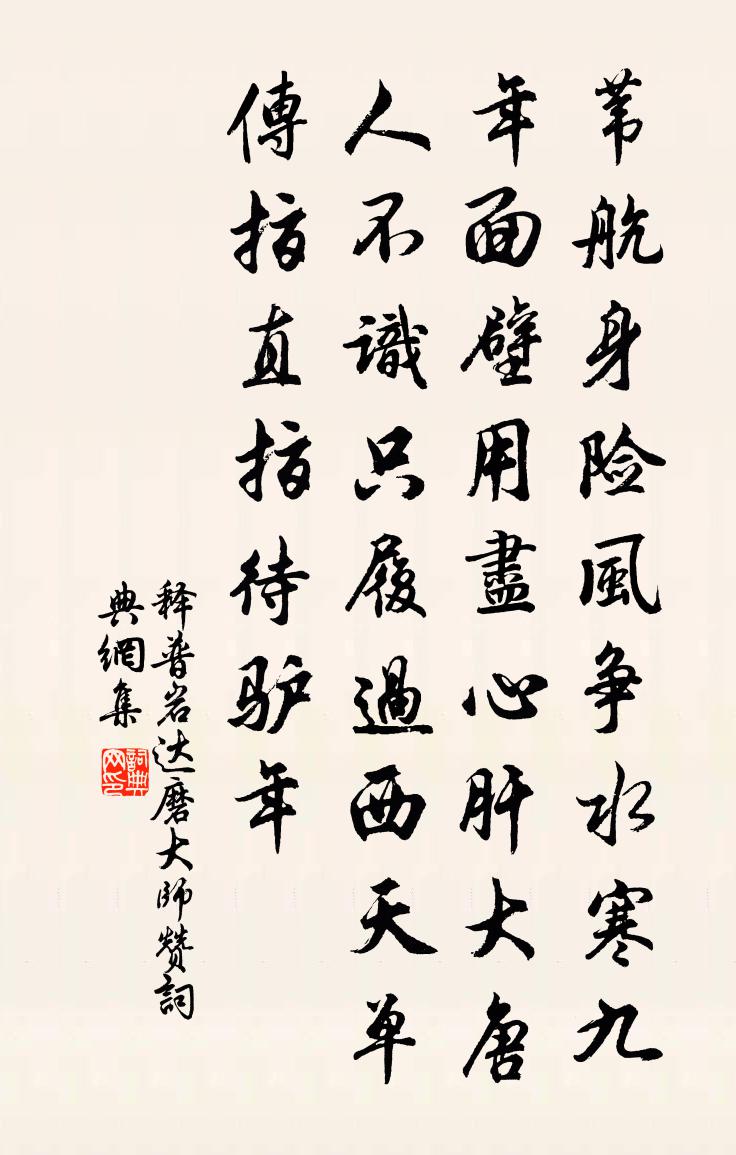 苇航身险風争水寒九
年面壁用盡心肝大唐
人不識只履過西天单
傳指直指待驴年
释普岩达磨大师赞詞
典網集
詞典网印